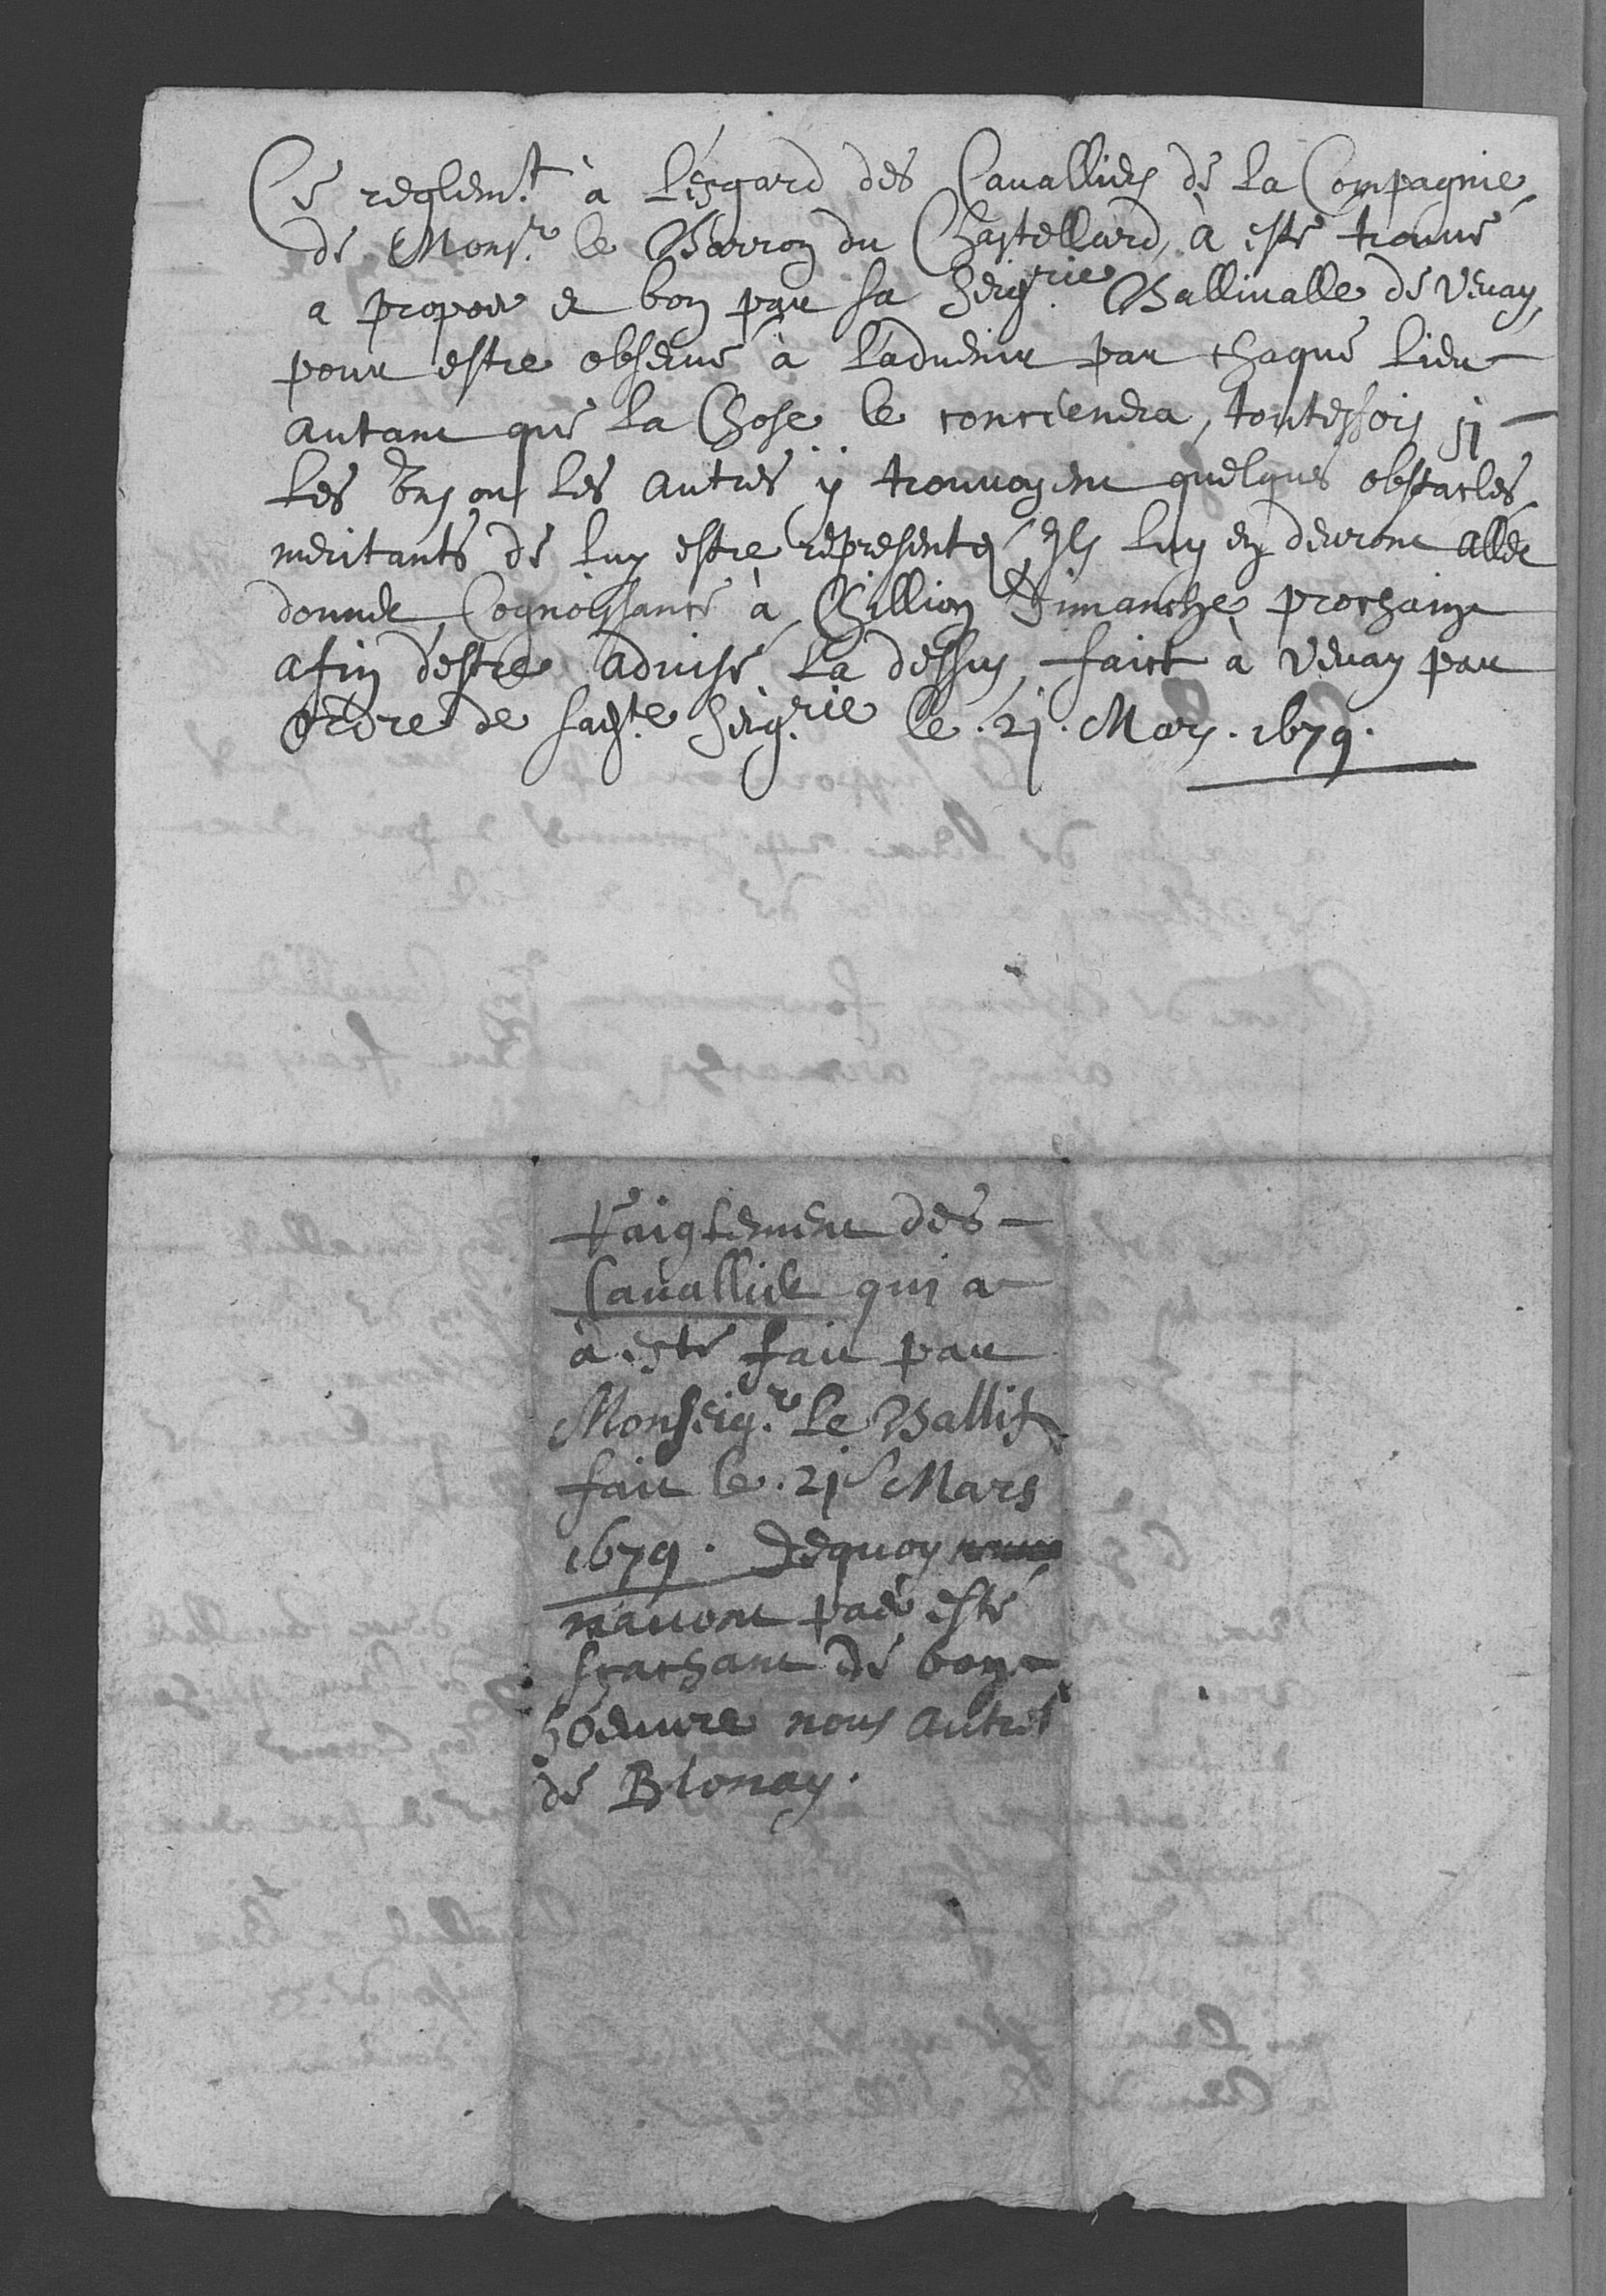 Ce reglem.t à l'esgard des Cavalliers de la Compagnie
de Mons.r le Barron du Chastellard, à esté trouvé
a propos et bon par sa Seig.rie Ballivalle de Vevay,
pour estre observé à l'advenir par chaque lieu
autant que la Chose le concernera, toutesfois si
les uns ou les autres ÿ trouvoyent quelques obstacles
meritants de luy estre representés, Ils luy en devront aller
donner Cognoissance à Chillion Dimanche prochain
afin d'estre advisé la dessus, faict à Vevay par
Ordre de sad.te Seig.rie le .21. Mars. 1679.
Raiglement des
Cavallier qui a
à esté fait par
Monseig.r le Ballif
fait le .21 Mars
1679. Dequoy
n'avont pas esté
scachant de bonne
hoeuvre nous autres
de Blonay.